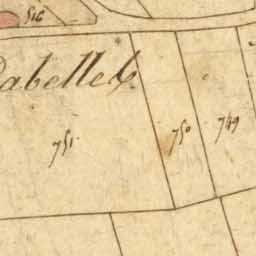 516
Dabelleb
751
750
749